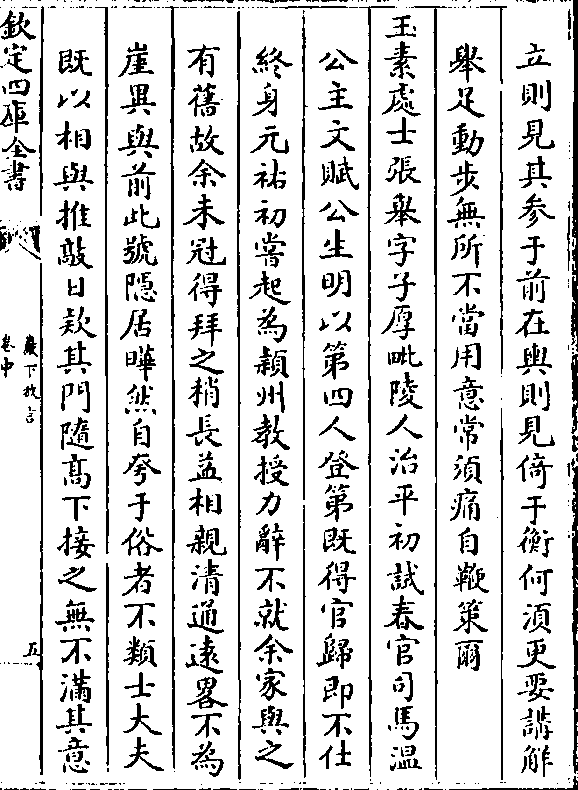 立則見其参于前在輿則見倚于衡何須更要講解
舉足動步無所不當用意常須痛自鞭策爾
玉素處士張舉字子厚毗陵人治平初試春官司馬温
公主文賦公生明以第四人登第既得官歸即不仕
終身元祐初嘗起為潁州教授力辭不就余家與之
有舊故余未冠得拜之稍長益相親清通逺畧不為
崖異與前此號隠居曄然自奓于俗者不類士大夫
既以相與推敲日欵其門隨髙下接之無不滿其意
欽定四庫全書
巖下放言
卷中
五